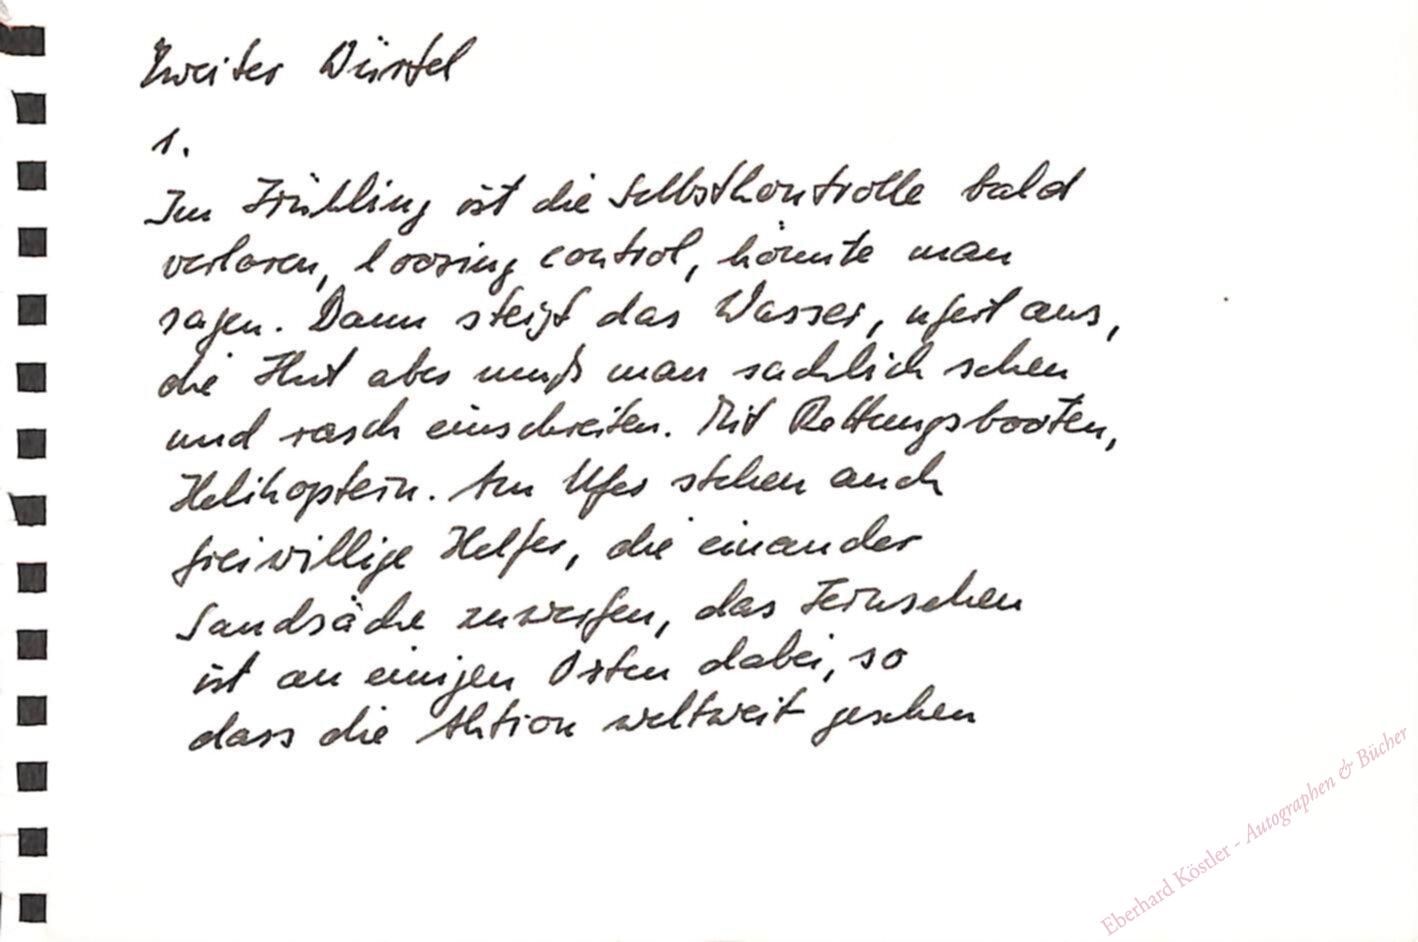 Zweiter Würfel
1.
Im Frühling ist die Selbstkontrolle bald
verloren, loosing control, könnte man
sagen. Dann steigt das Wasser, ufert aus,
die Flut aber muß man sachlich sehen
und rasch einschreiten. Mit Rettungsbooten,
Helikoptern. Am Ufer stehen auch
freiwillige Helfer, die einander
Sandsäcke zuwerfen, das Fernsehen
ist an einigen Orten dabei, so
dass die Aktion weltweit gesehen
Eberhard Köstler - Autographen & Bücher